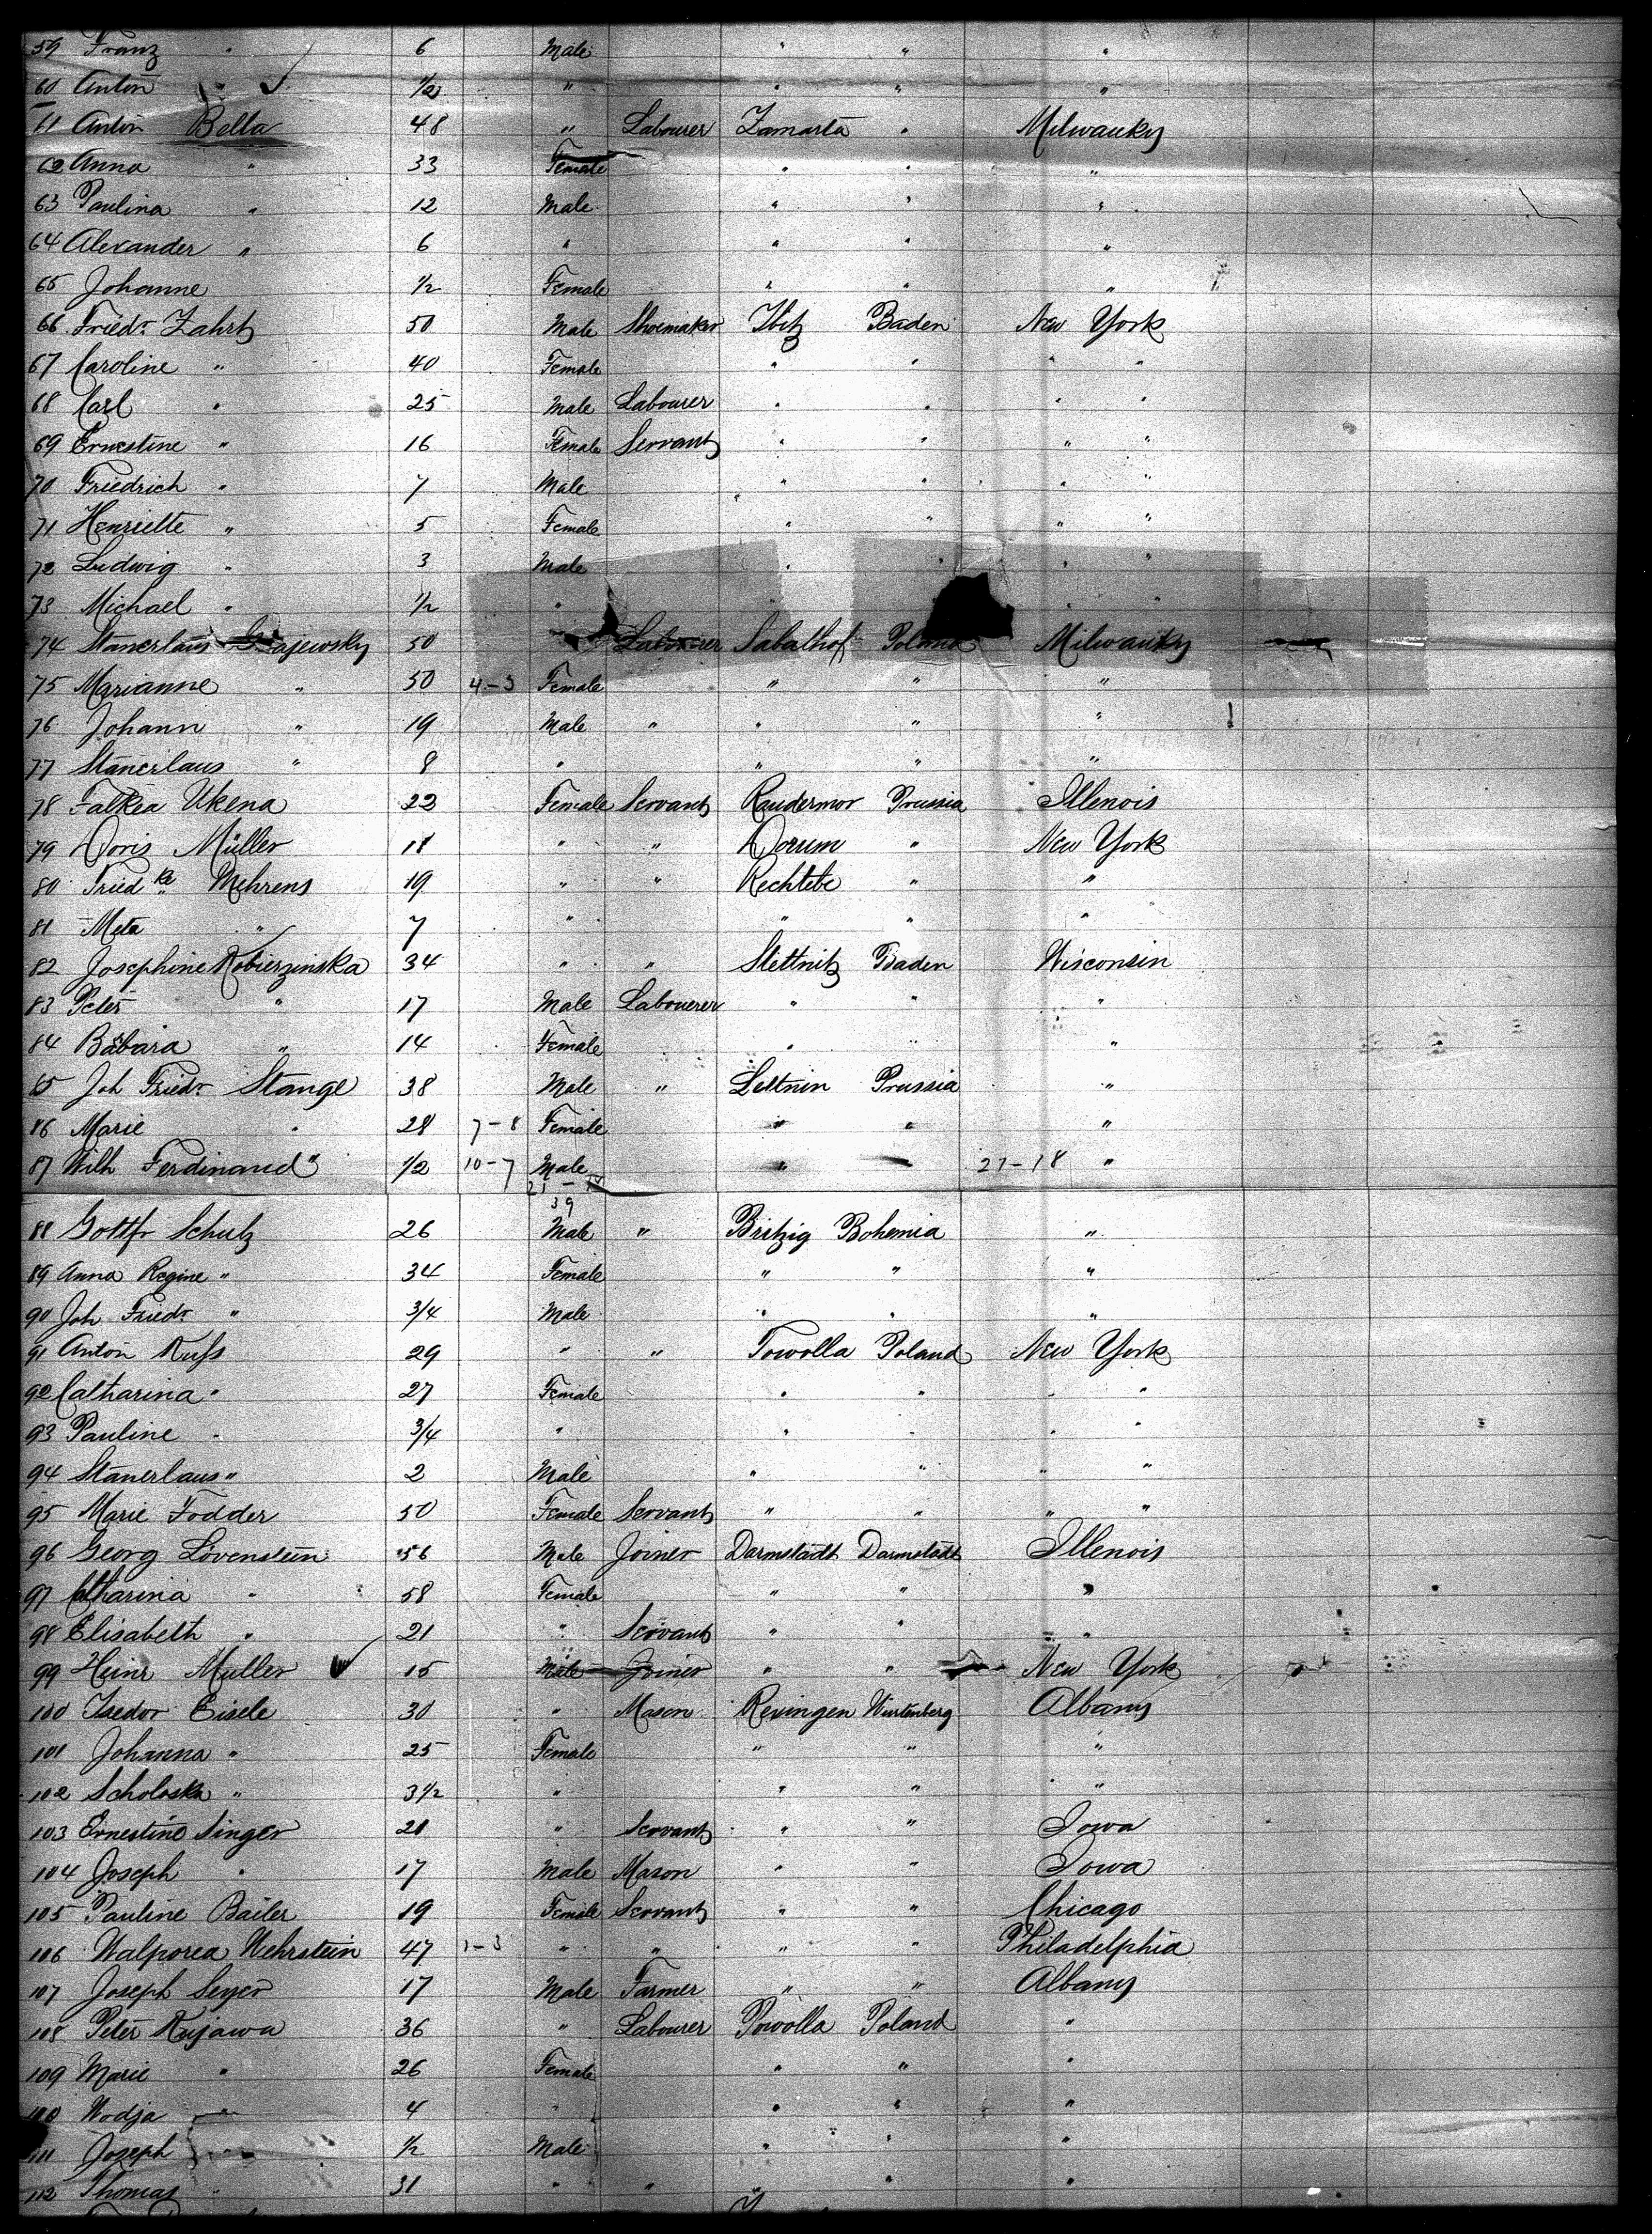 59 Franz " 6 Male " " "
60 Anton " 1/2 " " " "
61 Anton Bella 48 " Labourer Zamarta " Milwauky
62 Anna " 33 Female " " "
63 Paulina " 12 Male " " "
64 Alexander " 6 " " " "
65 Johanne 1/2 Female " " "
66 Friedr. Zahrt 50 Male Shoemaker Ibitz Baden New York
67 Caroline " 40 Female " " " "
68 Carl " 25 Male Labourer " " " "
69 Ernestine " 16 Female Servant " " " "
70 Friedrich " 7 Male " " " "
71 Henriette " 5 Female " " " "
72 Ludwig " 3 Male " " "
73 Michael " 1/2 " " "
74 Stanerlaus 50 Labourer Sabalhof Poland Milwauky
75 Marianne " 50 4-3 Female " " "
76 Johann " 19 Male " " " "
77 Stanerlaus " 8 " " " "
78 Falkea Ukena 22 Female Servant Raudermor Prussia Illenois
79 Doris Müller 18 " " Dorum " New York
80 Friedke Mehrens 19 " " Rechtebe " "
81 Meta " 7 " " " "
82 Josephine Kobierzinska 34 " " Slettnitz Baden Wisconsin
83 Peter " 17 Male Labouerer " " "
84 Babara " 14 Female " " "
85 Joh Friedr. Stange 38 Male " Lettnin Prussia "
86 Marie " 28 7-8 Female " " "
87 Wilh Ferdinand " 1/2 10-7 Male " 21-18 "
39
88 Gottfr Schulz 26 Male " Britzig Bohemia "
89 Anna Regine " 34 Female " " "
90 Joh Friedr " 3/4 Male " " "
91 Anton Kufs 29 " " Towolla Poland New York
92 Catharina " 27 Female " " " "
93 Pauline " 3/4 " " " " "
94 Stanerlaus " 2 Male " " " "
95 Marie Fodder 50 Female Servant " " " "
96 Georg Lövenstein 56 Male Joiner Darmstadt Darmstadt Illenois
97 Catharina " 58 Female " " "
98 Elisabeth " 21 " Servant " " "
99 Heinr Müller 15 Male Joiner " " New York
100 Isedor Eisele 30 " Mason Rexingen Wurtenberg Albany
101 Johanna " 25 Female " " "
102 Scholaska " 3 1/2 " " " "
103 Ernestine Singer 21 " Servant " " Iowa
104 Joseph " 17 Male Mason " " Iowa
105 Pauline Bailer 19 Female Servant " " Chicago
106 Walporea Wehrstein 47 1-3 " " " " Philadelphia
107 Joseph Seyer 17 Male Farmer " " Albany
108 Peter Kujawa 36 " Labourer Powolla Poland "
109 Marie " 26 Female " " "
110 Wodja " 4 " " " "
111 Joseph " 1/2 Male " " "
112 Thomas " 31 " " " " "